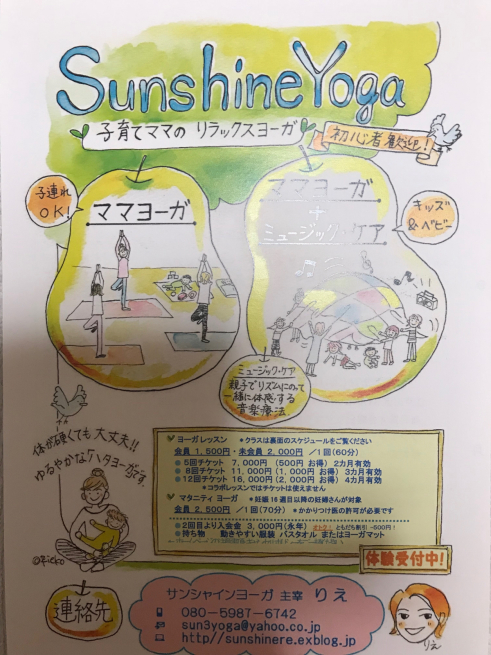 Sunshine Yoga
子育てママの リラックスヨーガ
初心者歓迎!
子連れ
OK!
ママヨーガ
ママヨーガ
+
ミュージック・ケア
キッズ
&ベビー
ミュージック・ケア
親子でリズムにのって
一緒に体感する
音楽療法
体が硬くても大丈夫!!
ゆるやかなハタヨーガです。
ヨーガレッスン ＊クラスは裏面のスケジュールをご覧ください
会員 1,500円・未会員 2,000円 /1回(60分)
●5回チケット 7,000円 (500円 お得) 2カ月有効
● 8回チケット 11,000円(1,000円 お得) 3カ月有効
●12回チケット 16,000円(2,000円 お得) 4カ月有効
＊コラボレッスンではチケットは使えません
マタニティ ヨーガ ＊妊娠16週目以降の妊婦さんが対象
会員 2,500円 /1回(70分) ＊かかりつけ医の許可が必要です
●2回目より入会金 3,000円(永年) ともだち割引 -500円!
●持ち物 動きやすい服装 バスタオル またはヨーガマット
体験受付中!
連絡先
サンシャインヨーガ 主宰 りえ
080-5987-6742
sun3yoga@yahoo.co.jp
http//sunshinere.exblog.jp
りえ